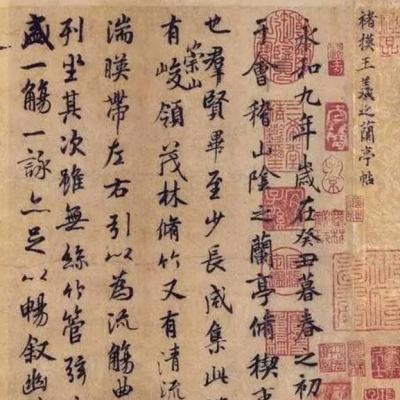 褚摸王羲之蘭亭帖
永和九年歲在癸丑暮春之初
于會稽山陰之蘭亭脩稧事
也羣賢畢至少長咸集此
有崇山峻領茂林脩竹又有清流
湍暎帶左右引以為流觴曲
列坐其次雖無絲竹管弦
盛一觴一詠亦足以暢敘幽